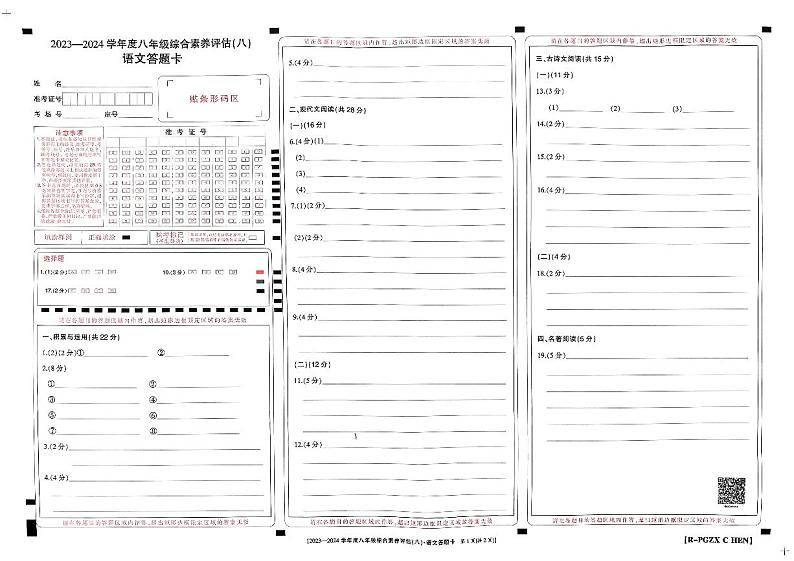 2023—2024 学年度八年级综合素养评估(八)
语文答题卡
姓 名
准考证号
考 场 号 座号
贴条形码区
注意事项
准 考 证 号
填涂样例 正确填涂
缺考标记
选择题
1.(1)(2分) 10.(3分)
17.(2分)
请在各题目的答题区域内作答,超出矩形边框限定区域的答案无效
一、积累与运用(共 22 分)
1.(2)(2分)① ②
2.(8分)
① ②
③ ④
⑤ ⑥
⑦ ⑧
3.(2分)
4.(4分)
请在各题目的答题区域内作答,超出矩形边框限定区域的答案无效
请在各题目的答题区域内作答,超出矩形边框限定区域的答案无效
5.(4分)
二、现代文阅读(共 28 分)
(一)(16分)
6.(4分)(1)
(2)
(3)
7.(1)(2分)
(2)(2分)
8.(4分)
9.(4分)
(二)(12分)
11.(5分)
12.(4分)
请在各题目的答题区域内作答,超出矩形边框限定区域的答案无效
【2023—2024 学年度八年级综合素养评估(八)·语文答题卡 第 1 页(共 2 页)】
请在各题目的答题区域内作答,超出矩形边框限定区域的答案无效
三、古诗文阅读(共 15 分)
(一)(11分)
13.(3分)
(1) (2) (3)
14.(2分)
15.(2分)
16.(4分)
(二)(4分)
18.(2分)
四、名著阅读(5分)
19.(5分)
请在各题目的答题区域内作答,超出矩形边框限定区域的答案无效
【R-PGZX C HEN】